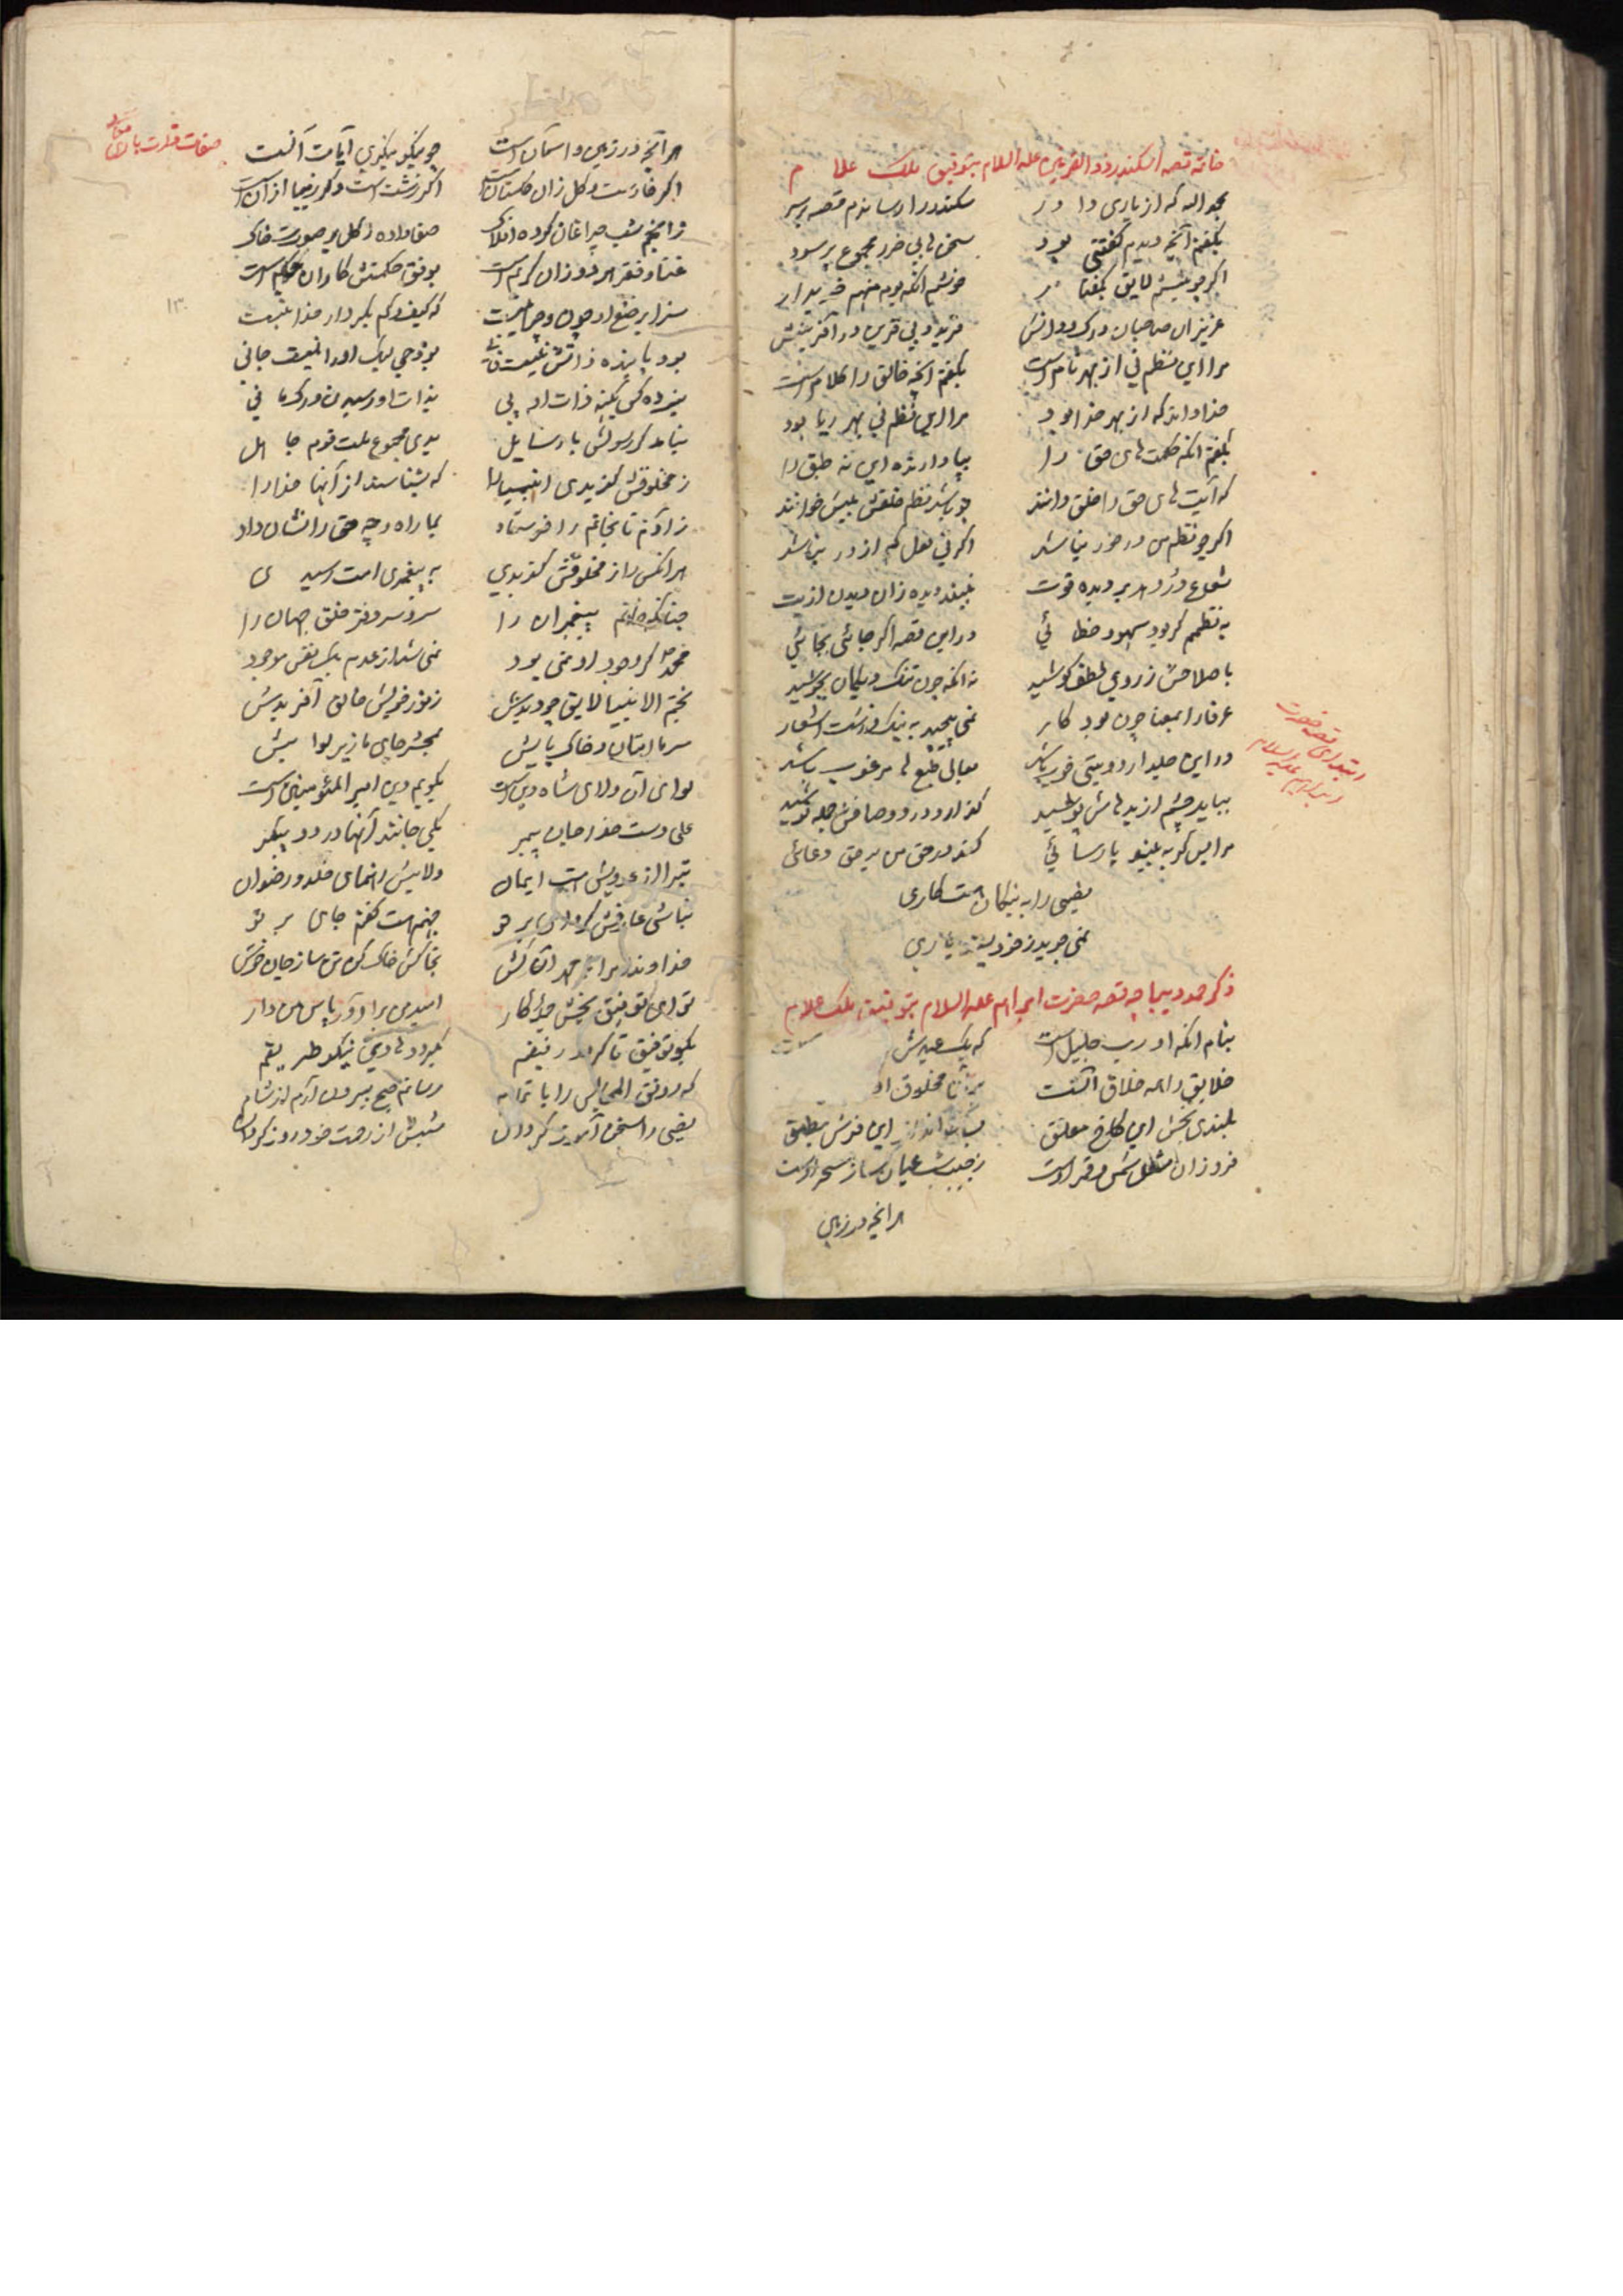 خاتمه قصه اسکندر ذوالقرنین علیه السلام بتوفیق ملک علام
بحمدالله که از یاری داور سکندر را رساندم قصه بر سر
بگفتم آنچه دیدم گفتنی بود سخن های بی ضرر مجموع پر سود
اگر چه نیستم لایق بگفتار خوشم آنکه بود منهم خریدار
عزیزان صاحبان درک و دانش فرید و بی قرین در آفرینش
مرا این نظم نی از بهر نام است بگفتم آنچه خالق را کلام است
خدا داند که از بهر خدا بود مرا این نظم نی بهر ریا بود
بگفتم آنکه حکمت های حق را بپا دارنده این نه طبق را
که آیت های حق را خلق دانند چو باشد نظم خلقش بیش خوانند
اگر چه نظم من در خور نباشد اگر نی لعل کم از در نباشد
شعاع در دهد بر دیده قوت نبیند دیده زان دیدن اذیت
به نظمم گر بود سهو و خطائی در این قصه اگر جائی بجائی
باصلاحش ز روی لطف کوشید نه آنکه چون تنک دیگ بجوشید
عرفا را بمعنا چون بود کار نمی پیچد به نیک و زشت اشعار
در این جلد ار دو بیتی خوب باشد معالی طبع را مرغوب باشد
بباید چشم از بدهاش پوشید
مرا پس گر به بیند پارسائی کند در حق من بر حق دعائی
یضیی را به نیکان هست کاری
نمی جوید ز خود یاری
ذکر حمد دیباچه قصه حضرت ابراهیم علیه السلام بتوفیق ملک علام
ابتدای قصه حضرت
ابراهیم علیه السلام
بنام آنکه او رب جلیل است که یک عبدش
خلایق را همه خلاق آنست مخلوق او
بلندی بخش این کاخ معلق این فرش مطبق
فروزان مشعل شمس و قمر اوست ز جیب شب عیان ساز سحر اوست
هر آنچه در زمین
صفات قدرت باری تعالی
هر آنچه در زمین و آسمان است چو نیکو بنگری آیات آنست
اگر خار است و گل زان گلستان است اگر زشت است و گر زیبا از آن است
ز انجم شب چراغان کرده افلاک صفا داده ز گل بر صورت خاک
غنا و فقر هر دو زان کریم است بوفق حکمتش کاو آن حکیم است
سزا بر صنع او چون و چرا نیست که کیف و کم بکردار خدا نیست
بود پاینده ذاتش نیست فانی بود حی لیک او را نیست جانی
نبرده کس بکنه ذات او پی بذات او رسیدن درک ما نی
نیامد گر رسولش با رسایل بدی مجموع ملت قوم جاهل
ز مخلوقش گزیدی انبیا را که بشناسند از آنها خدا را
ز آدم تا بخاتم را فرستاد بما راه ره حق را نشان داد
هر آنکس را ز مخلوقش گزیدی به پیغمبری امت رسیدی
چنانکه خاتم پیغمبران را سر و سردفتر خلق جهان را
محمد گر وجود او نمی بود نمی شد از عدم یک نقش موجود
بختم الانبیا لایق چو دیدش ز نور خویش خالق آفریدش
سر ما امتان و خاک پایش بمحشر جای ما زیر لوایش
لوای آن ولای شاه دین است بگویم دین امیرالمؤمنین است
علی دست خدا جان پیمبر یکی جانند آنها در دو پیکر
تبرا از عدویش است ایمان ولایش رهنمای خلد و رضوان
نباشی عارفش گر وای بر تو جهنم هست گفتم جای بر تو
توای توفیق بخش هر کار امیدم را برآور پاس من دار
بکو توفیق تا گردد رفیقم بگیرد های نیکو طریقم
که رونق المجالس را باتمام رسانم صبح بیرون آرم از شام
یضیی را سخن آموز گردان شبش از رحمت خود روز گردان
۱۳۰